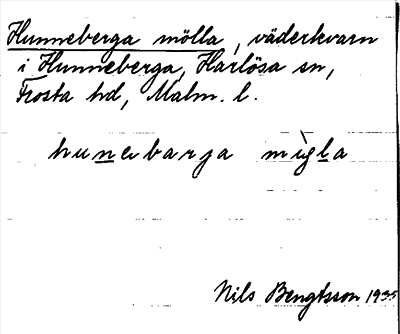 Hunneberga mölla, väderkvarn
i Hunneberga, Harlösa sn,
Frosta hd, Malm. l.
hunebarja
Nils Bengtsson 1935